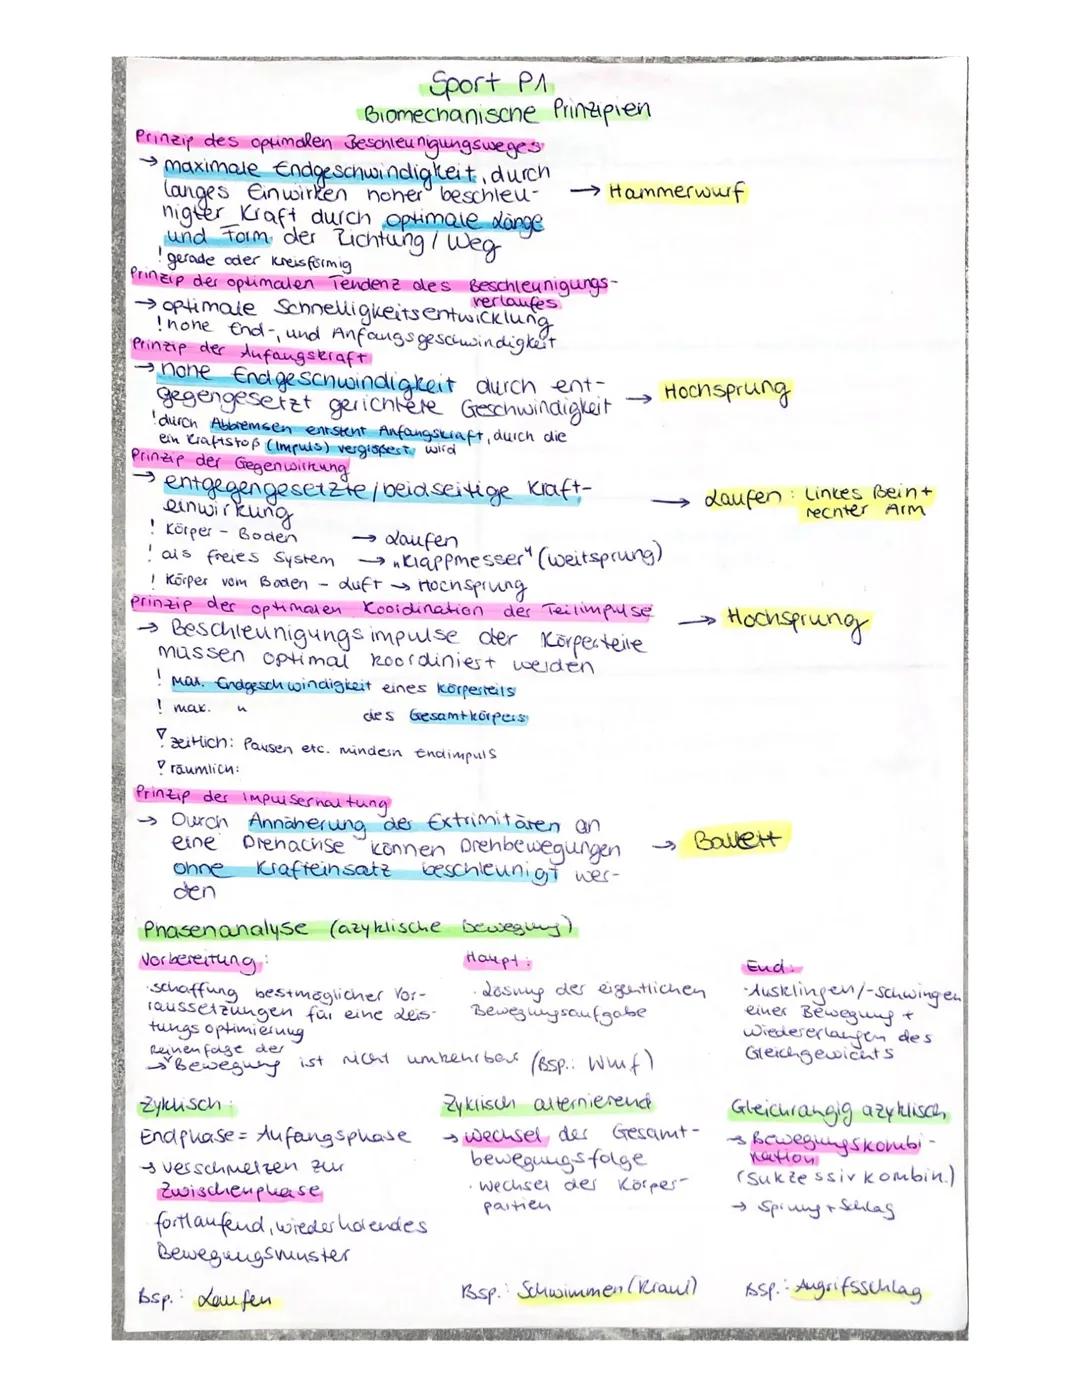 Sport P1
Biomechanische Prinzipien
Prinzip des optimalen Beschleunigungsweges
→ maximale Endgeschwindigkeit, durch
langes Einwirken hoher beschleu-
nigter Kraft durch optimale Länge
und Form der Richtung / Weg
→ Hammerwurf
! gerade oder kreisförmig
Prinzip der optimalen Tendenz des Beschleunigungs-
verlaufes
→ optimale Schnelligkeitsentwicklung
! hohe End-, und Anfangsgeschwindigkeit
Prinzip der Anfangskraft
→ hohe Endgeschwindigkeit durch ent-
gegengesetzt gerichtete Geschwindigkeit
→ Hochsprung
! durch Abbremsen entsteht Anfangskraft, durch die
ein Kraftstoß (Impuls) vergrößert wird
Prinzip der Gegenwirkung
→ entgegengesetzte / beidseitige Kraft-
einwirkung
→ Laufen: Linkes Bein +
rechter Arm
! Körper - Boden → Laufen
! als freies System → „Klappmesser" (Weitsprung)
! Körper vom Boden - Luft → Hochsprung
Prinzip der optimalen Koordination der Teilimpulse
→ Hochsprung
→ Beschleunigungsimpulse der Körperteile
müssen optimal koordiniert werden
! max. Endgeschwindigkeit eines Körperteils
! max. " des Gesamtkörpers
! zeitlich: Pausen etc. mindern Endimpuls
! räumlich:
Prinzip der Impulserhaltung
→ Durch Annäherung der Extrimitäten an
eine Drehachse können Drehbewegungen
ohne Krafteinsatz beschleunigt wer-
den
→ Ballett
Phasenanalyse (azyklische Bewegung)
Vorbereitung:
· schaffung bestmöglicher Vor-
raussetzungen für eine Leis-
tungsoptimierung
Haupt:
· Lösung der eigentlichen
Bewegungsaufgabe
End:
· Ausklingen/-schwingen
einer Bewegung +
Wiedererlangen des
Gleichgewichts
Reihenfolge der
→ Bewegung ist nicht umkehrbar (Bsp.: Wurf)
Zyklisch:
Endphase = Anfangsphase
→ verschmelzen zur
Zwischenphase
fortlaufend, wiederholendes
Bewegungsmuster
Bsp.: Laufen
Zyklisch alternierend
→ Wechsel der Gesamt-
bewegungsfolge
· Wechsel der Körper-
partien
Bsp.: Schwimmen (Kraul)
Gleichrangig azyklisch
→ Bewegungskombi-
nation
(Sukzessivkombin.)
→ Sprung + Schlag
Bsp.: Angrifsschlag